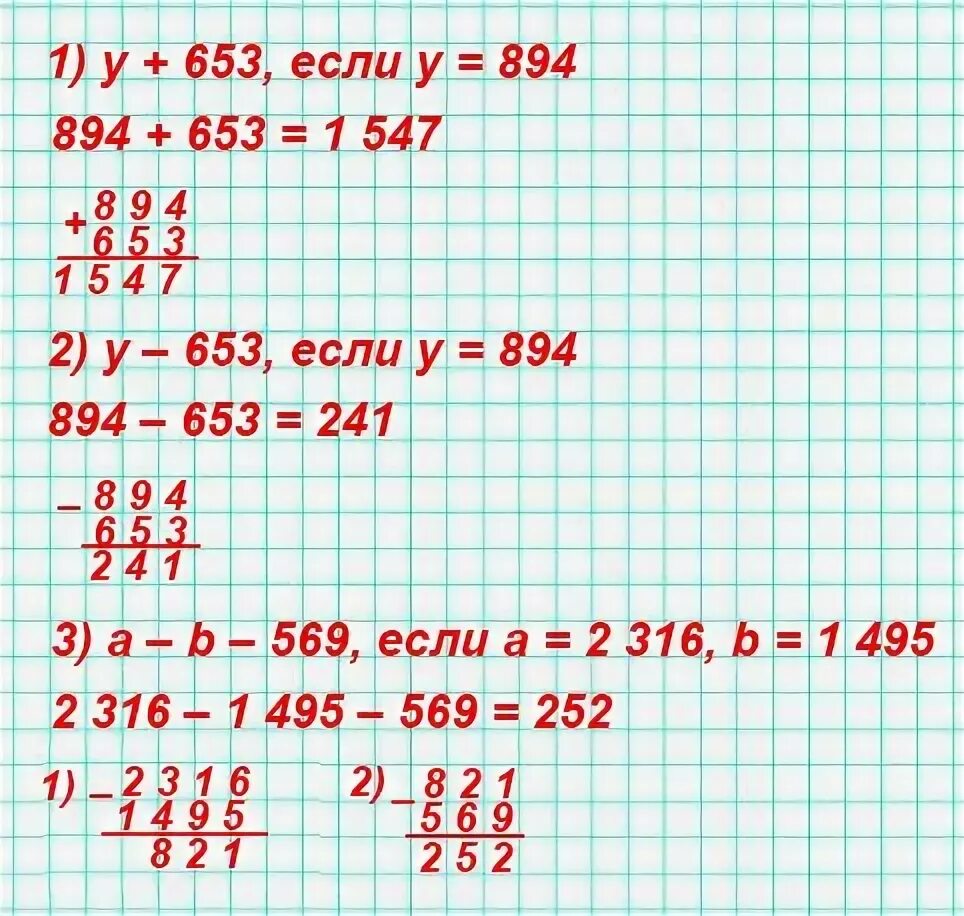 1) y + 653, если y = 894
894 + 653 = 1 547
+ 8 9 4
6 5 3
1 5 4 7
2) y – 653, если y = 894
894 – 653 = 241
– 8 9 4
6 5 3
2 4 1
3) a – b – 569, если a = 2 316, b = 1 495
2 316 – 1 495 – 569 = 252
1) – 2 3 1 6
1 4 9 5
8 2 1
2) – 8 2 1
5 6 9
2 5 2